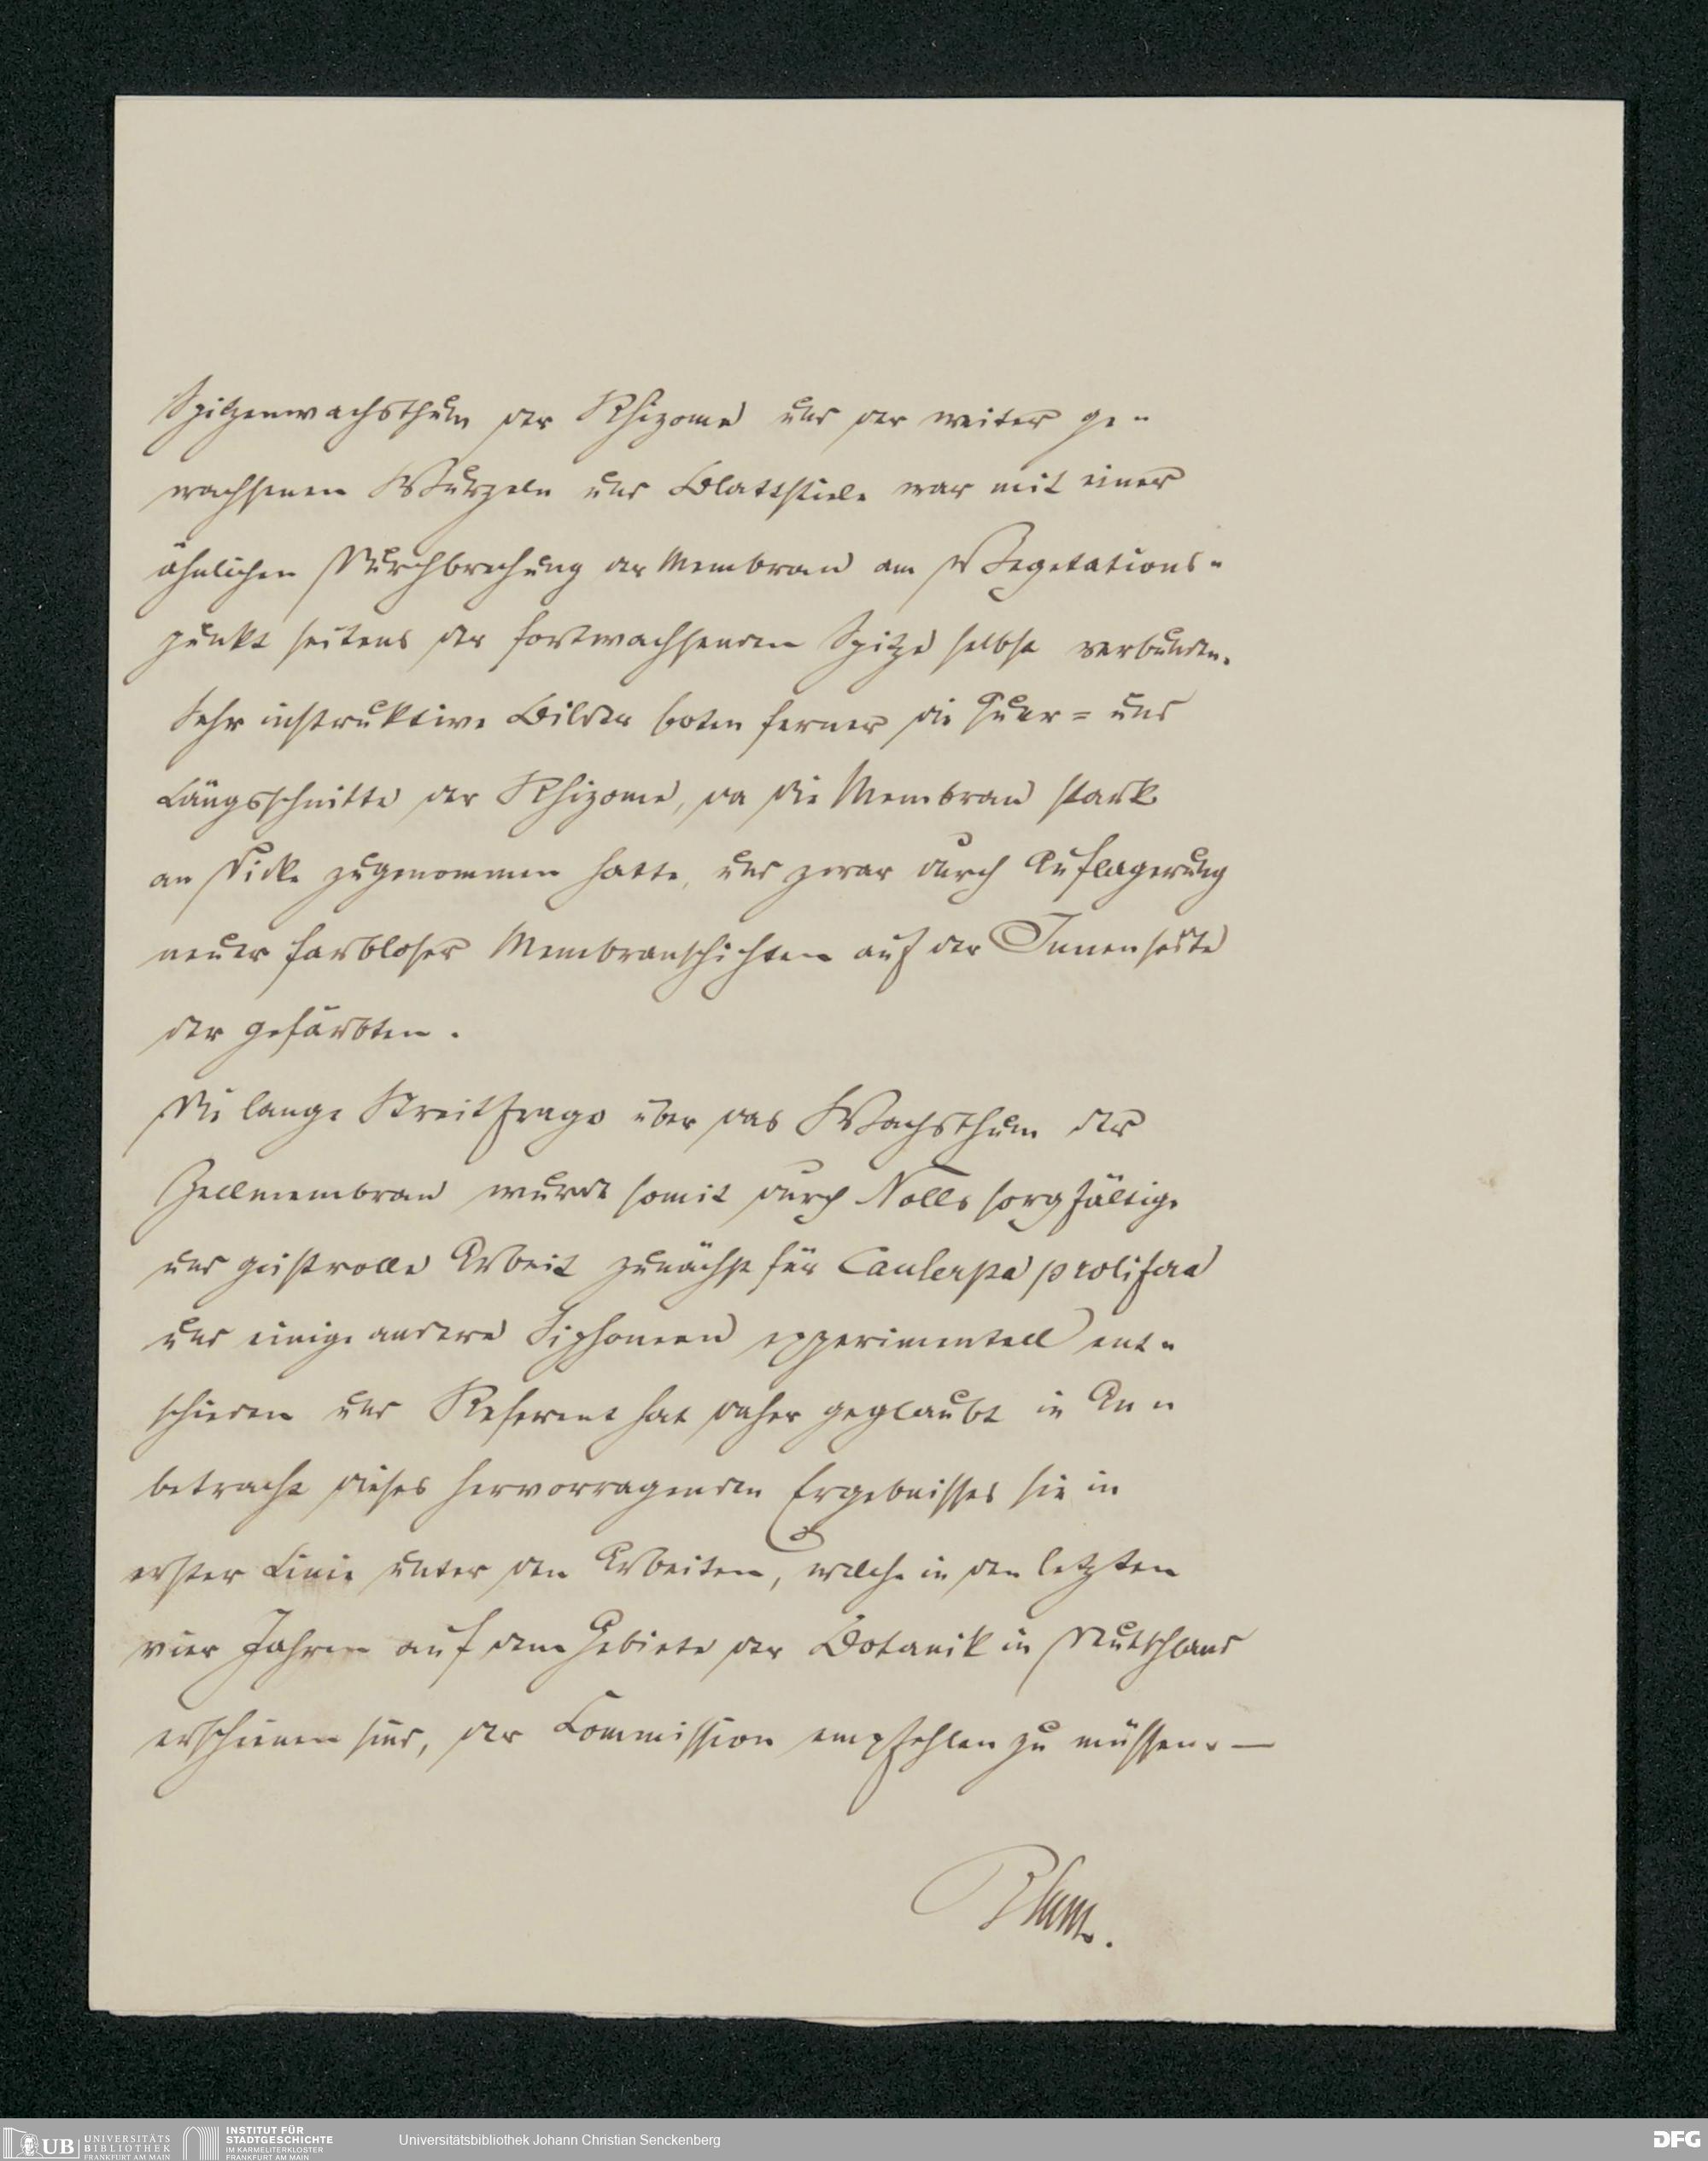 Spitzenwachsthum der Rhizome und der weiter ge-
wachsenen Wurzeln und Blattstiele war mit einer
ähnlichen Durchbrechung der Membran am Vegetations-
punkt seitens der fortwachsenden Spitze selbst verbunden.
Sehr instruktive Bilder boten ferner die Quer- und
Längsschnitte der Rhizome, da die Membran stark
an Dicke zugenommen hatte, und zwar durch Auflagerung
neuer farbloser Membranschichten auf der Innenseite
der gefärbten.
Die lange Streitfrage über das Wachsthum der
Zellmembran wurde somit durch Nolls sorgfältige
und geistvolle Arbeit zunächst für Caulerpa prolifera
und einige andere Siphoneen experimentell ent-
schieden und Referent hat daher geglaubt in An-
betracht dieses hervorragenden Ergebnisses sie in
erster Linie unter den Arbeiten, welche in den letzten
vier Jahren auf dem Gebiete der Botanik in Deutschland
erschienen sind, der Commission empfehlen zu müssen. —
Blum.
UB UNIVERSITÄTS
BIBLIOTHEK
FRANKFURT AM MAIN
INSTITUT FÜR
STADTGESCHICHTE
IM KARMELITERKLOSTER
FRANKFURT AM MAIN
Universitätsbibliothek Johann Christian Senckenberg
DFG